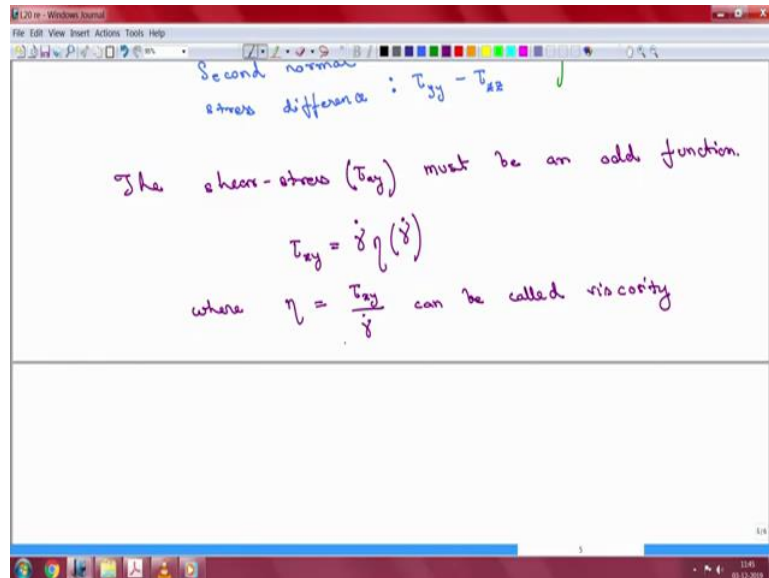 L20 re - Windows Journal
File Edit View Insert Actions Tools Help
Second normal
stress difference : τyy - τzz
The shear-stress (τxy) must be an odd function.
τxy = γ̇ η(γ̇)
where η = τxy / γ̇ can be called viscosity
5
11:45
03-12-2019